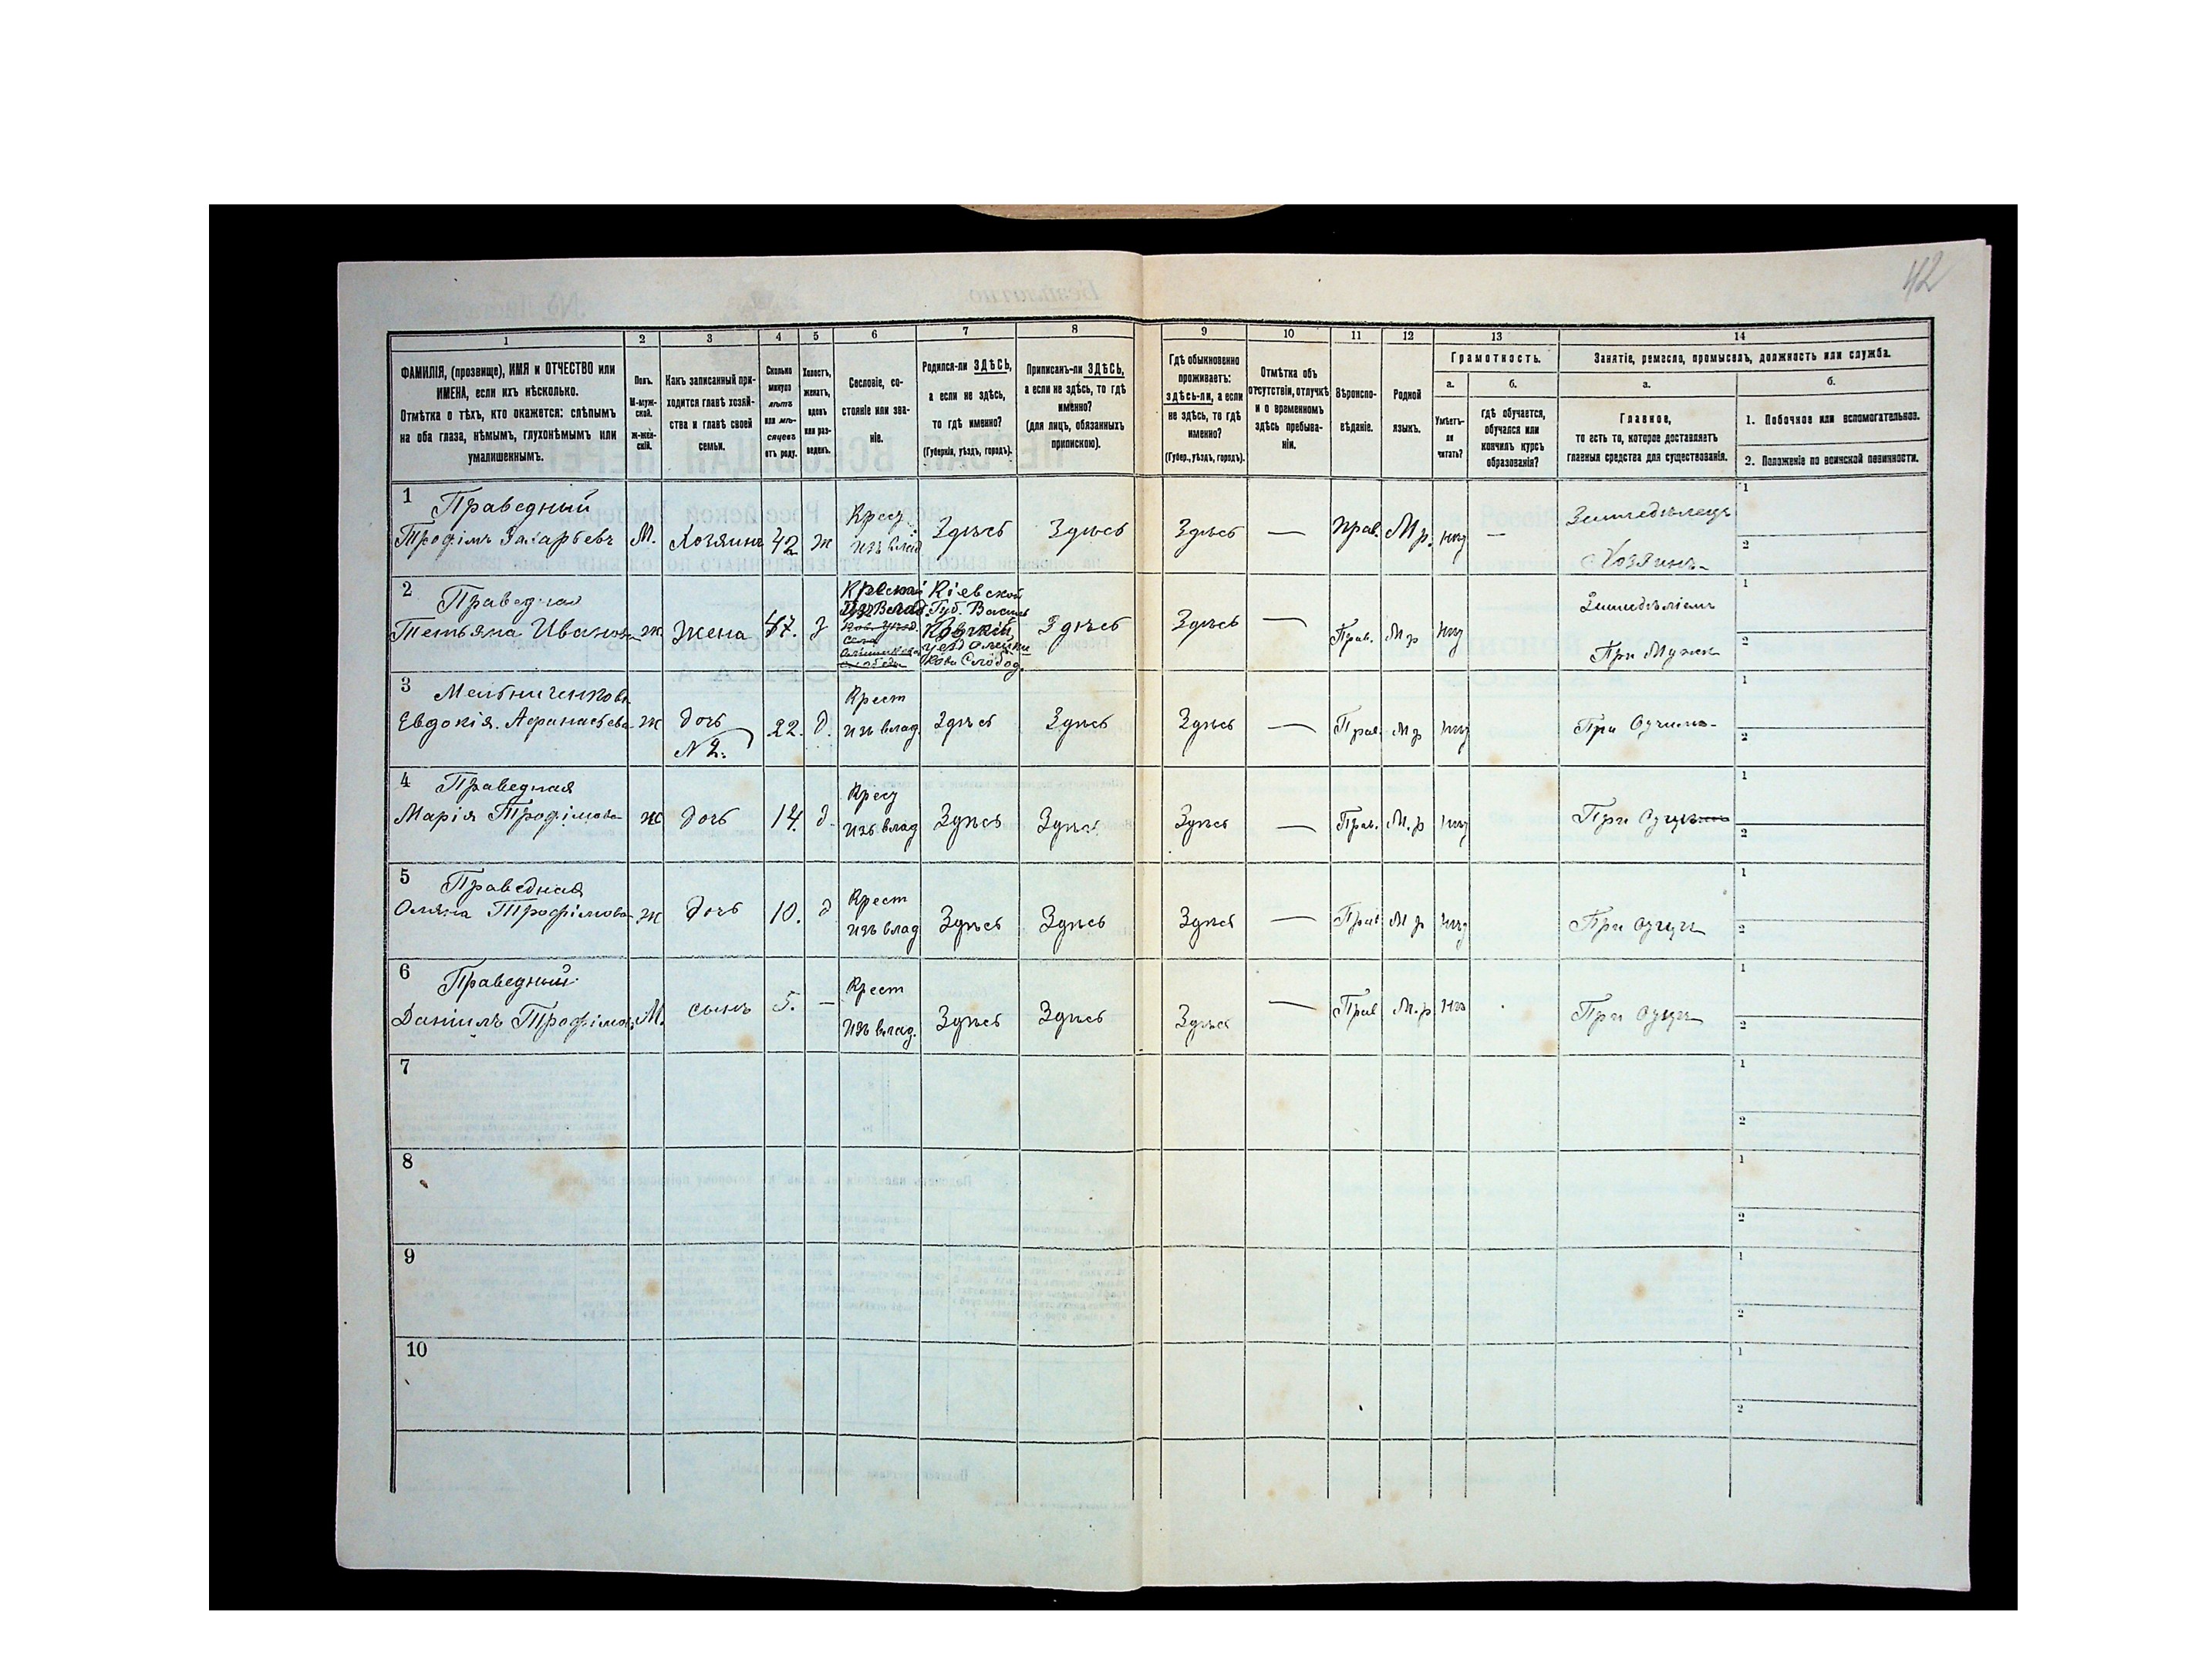 42
1 2 3 4 5 6 7 8 9 10 11 12 13 14
ФАМИЛІЯ, (прозвище), ИМЯ и ОТЧЕСТВО или
ИМЕНА, если ихъ нѣсколько.
Отмѣтка о тѣхъ, кто окажется: слѣпымъ
на оба глаза, нѣмымъ, глухонѣмымъ или
умалишеннымъ.
Полъ.
М-муж-
ской.
ж-жен-
скій.
Какъ записанный при-
ходится главѣ хозяй-
ства и главѣ своей
семьи.
Сколько
минуло
лѣтъ
или мѣ-
сяцевъ
отъ роду.
Холостъ,
женатъ,
вдовъ
или раз-
веденъ.
Сословіе, со-
стояніе или зва-
ніе.
Родился-ли ЗДѢСЬ,
а если не здѣсь,
то гдѣ именно?
(Губернія, уѣздъ, городъ).
Приписанъ-ли ЗДѢСЬ,
а если не здѣсь, то гдѣ
именно?
(для лицъ, обязанныхъ
припискою).
Гдѣ обыкновенно
проживаетъ:
здѣсь-ли, а если
не здѣсь, то гдѣ
именно?
(Губер., уѣздъ, городъ).
Отмѣтка объ
отсутствіи, отлучкѣ
и о временномъ
здѣсь пребыва-
ніи.
Вѣроиспо-
вѣданіе.
Родной
языкъ.
Грамотность.
а. б.
Умѣетъ-
ли
читать?
гдѣ обучается,
обучался или
кончилъ курсъ
образованія?
Занятіе, ремесло, промыселъ, должность или служба.
а. б.
Главное,
то есть то, которое доставляетъ
главныя средства для существованія.
1. Побочное или вспомогательное.
2. Положеніе по воинской повинности.
1 Праведный
Трофімъ Захарьевъ М. Хозяинъ 42 ж
Крест
изъ влад
Здѣсь Здѣсь Здѣсь — Прав. М р. —
Земледѣлецъ
Хозяинъ
1
2
2 Праведная
Тетьяна Иванова ж. жена 47. з
Крест
Изъ Влад.
Кіевской
Губ. Василь
Ковскій
уезд Олейни
кова Слобод.
Здѣсь Здѣсь — Прав. М р
Земледѣліемъ
При Мужѣ
1
2
3 Мельниченкова
Евдокія. Афанасьева ж
дочь
N 2.
22. д.
Крест
изъ влад.
Здѣсь Здѣсь Здѣсь — Прав. М р
При Отчимѣ
1
2
4 Праведная
Марія Трофімова ж дочь 14. д.
Крест
Изъ влад
Здѣсь Здѣсь Здѣсь — Прав. М. р
При
1
2
5 Праведная
Трофімова ж дочь 10. д
Крест
Изъ влад
Здѣсь Здѣсь Здѣсь — Прав М р
При Отцѣ
1
2
6 Праведный
Даніилъ Трофімовъ М. сынъ 5. —
Крест
Изъ влад.
Здѣсь Здѣсь Здѣсь — Прав М. р
При Отцѣ
1
2
7
1
2
8
1
2
9
1
2
10
1
2